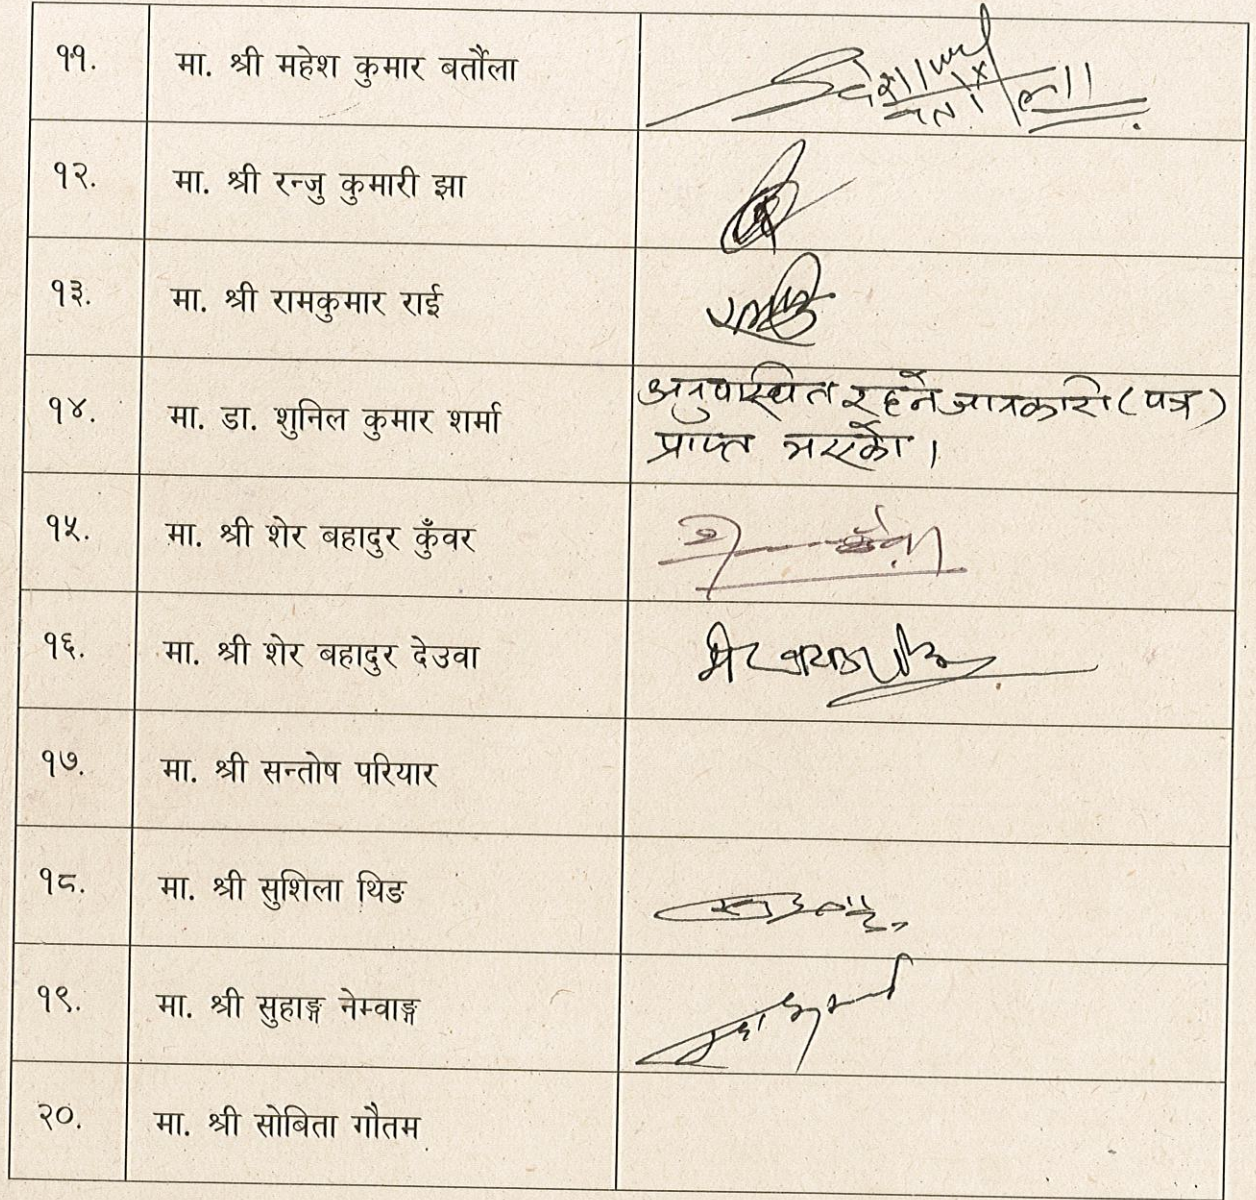 ११. मा. श्री महेश कुमार बर्तौला
१२. मा. श्री रन्जु कुमारी झा
१३. मा. श्री रामकुमार राई
१४. मा. डा. शुनिल कुमार शर्मा अनुपस्थित रहने जानकारी (पत्र)
प्राप्त भएको ।
१५. मा. श्री शेर बहादुर कुँवर
१६. मा. श्री शेर बहादुर देउवा
१७. मा. श्री सन्तोष परियार
१८. मा. श्री सुशिला थिङ
१९. मा. श्री सुहाङ्ग नेम्वाङ्ग
२०. मा. श्री सोबिता गौतम